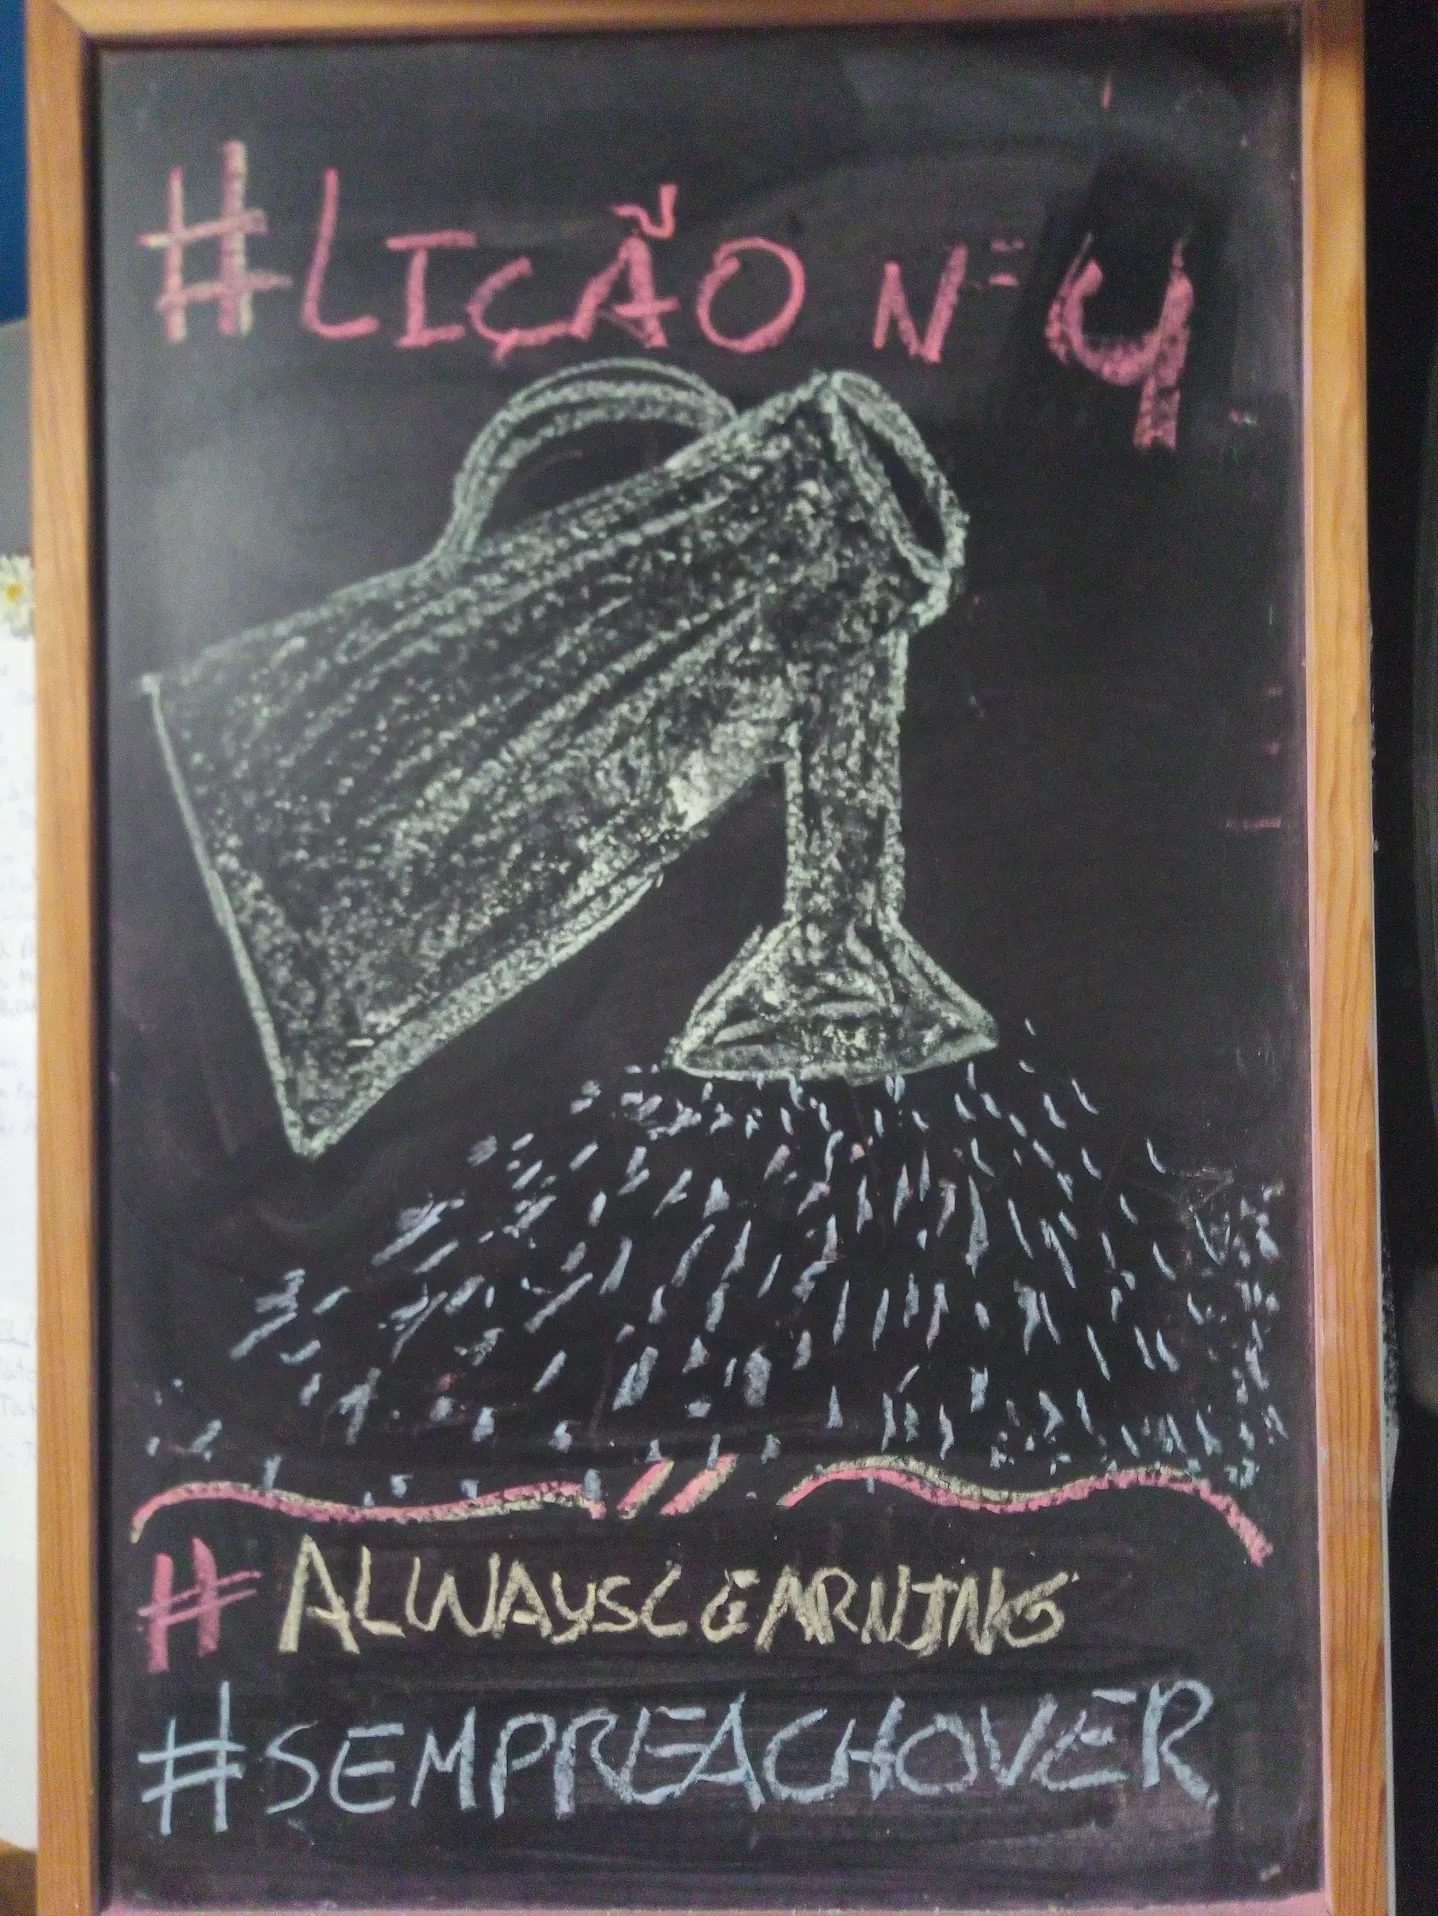 #LIÇÃO Nº 4
#ALWAYSLEARNING
#SEMPREACHOVER